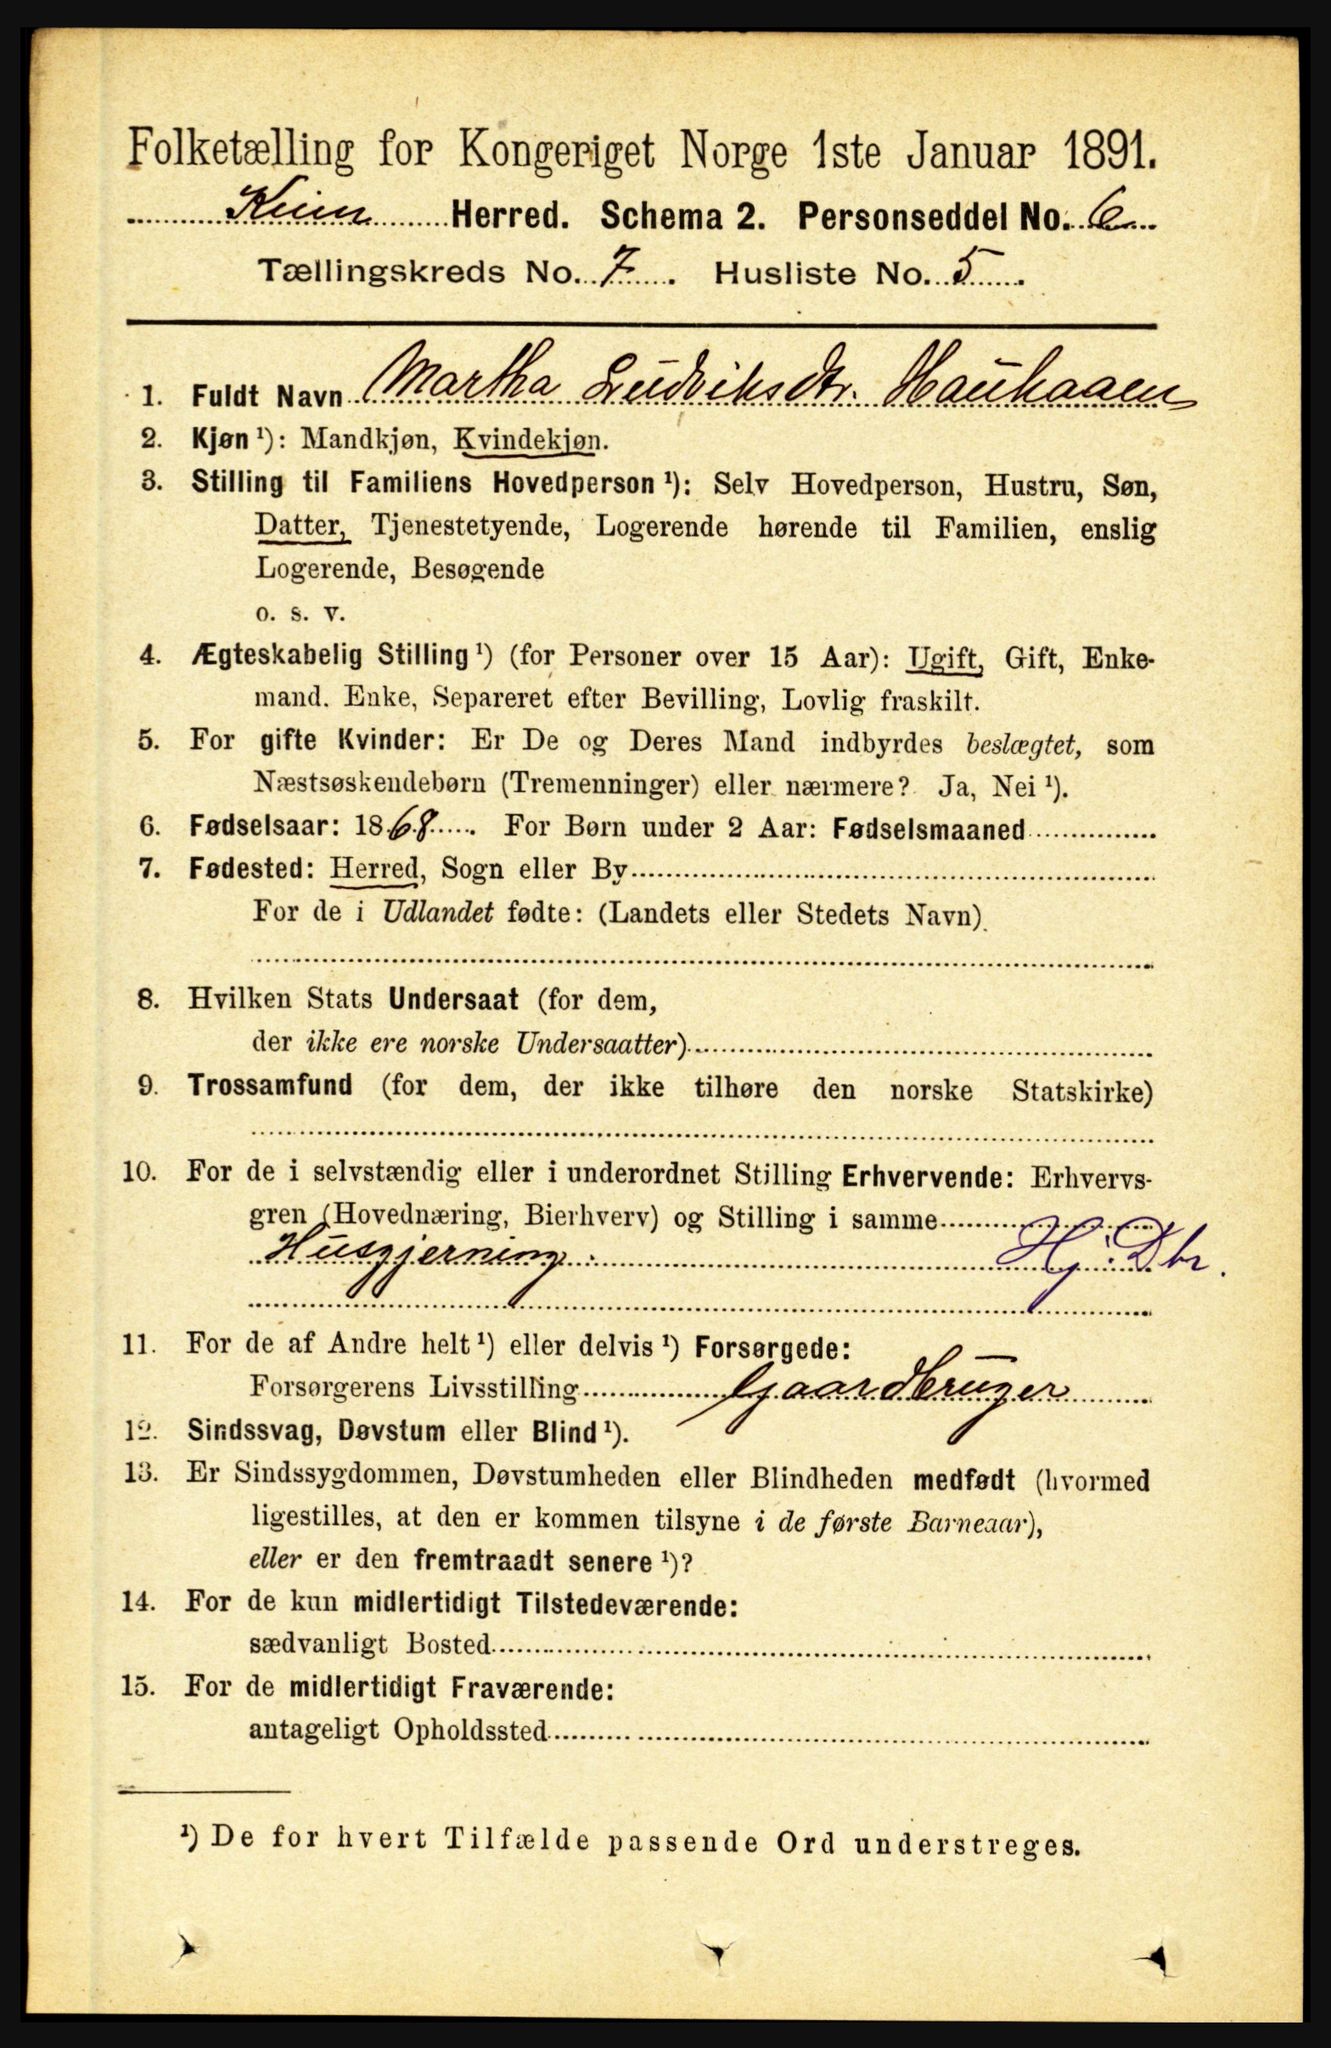 Folketælling for Kongeriget Norge 1ste Januar 1891.
Kinn Herred. Schema 2. Personseddel No. 6
Tællingskreds No. 7. Husliste No. 5.
1. Fuldt Navn Martha Ludviksdtr. Hauhaaen
2. Kjøn ¹): Mandkjøn, Kvindekjøn.
3. Stilling til Familiens Hovedperson ¹): Selv Hovedperson, Hustru, Søn,
Datter, Tjenestetyende, Logerende hørende til Familien, enslig
Logerende, Besøgende
o. s. v.
4. Ægteskabelig Stilling ¹) (for Personer over 15 Aar): Ugift, Gift, Enke-
mand. Enke, Separeret efter Bevilling, Lovlig fraskilt.
5. For gifte Kvinder: Er De og Deres Mand indbyrdes beslægtet, som
Næstsøskendebørn (Tremenninger) eller nærmere? Ja, Nei ¹).
6. Fødselsaar: 1868. For Børn under 2 Aar: Fødselsmaaned
7. Fødested: Herred, Sogn eller By
For de i Udlandet fødte: (Landets eller Stedets Navn).
8. Hvilken Stats Undersaat (for dem,
der ikke ere norske Undersaatter)
9. Trossamfund (for dem, der ikke tilhøre den norske Statskirke)
10. For de i selvstændig eller i underordnet Stilling Erhvervende: Erhvervs-
gren (Hovednæring, Bierhverv) og Stilling i samme
Husgjerning. Hj. Dtr.
11. For de af Andre helt ¹) eller delvis ¹) Forsørgede:
Forsørgerens Livsstilling Gaardbruger
12. Sindssvag, Døvstum eller Blind ¹).
13. Er Sindssygdommen, Døvstumheden eller Blindheden medfødt (hvormed
ligestilles, at den er kommen tilsyne i de første Barneaar),
eller er den fremtraadt senere ¹)?
14. For de kun midlertidigt Tilstedeværende:
sædvanligt Bosted
15. For de midlertidigt Fraværende:
antageligt Opholdssted
¹) De for hvert Tilfælde passende Ord understreges.